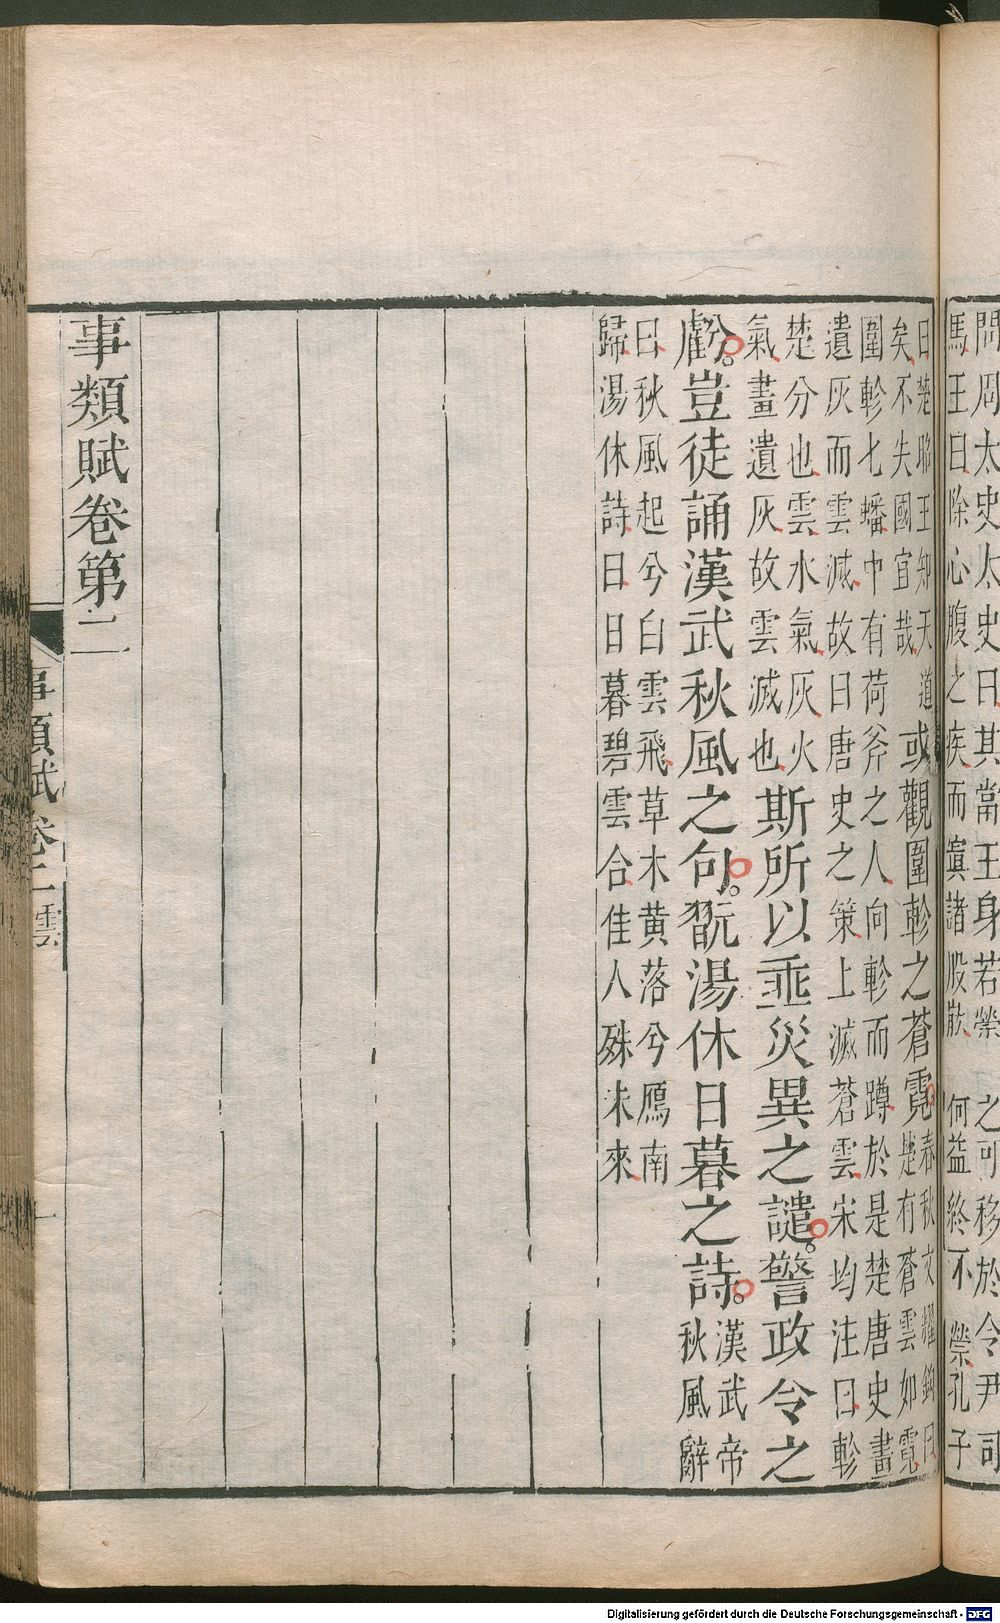 問周太史太史曰其當王身若禜之可移於令尹司
馬王曰除心腹之疾而寘諸股肱何益終不禜孔子
曰楚昭王知天道
矣不失國宜哉
或觀圍軫之蒼霓
春秋文耀鉤曰
楚有蒼雲如霓
圍軫七蟠中有荷斧之人向軫而蹲於是楚唐史畫
遺灰而雲滅故曰唐史之策上滅蒼雲宋均注曰軫
楚分也雲水氣灰火
氣畫遺灰故雲滅也
斯所以垂災異之譴警政令之
虧豈徒誦漢武秋風之句翫湯休日暮之詩
漢武帝
秋風辭
曰秋風起兮白雲飛草木黄落兮鴈南
歸湯休詩曰日暮碧雲合佳人殊未來
事類賦卷第二
事類賦卷二 雲
Digitalisierung gefördert durch die Deutsche Forschungsgemeinschaft - DFG